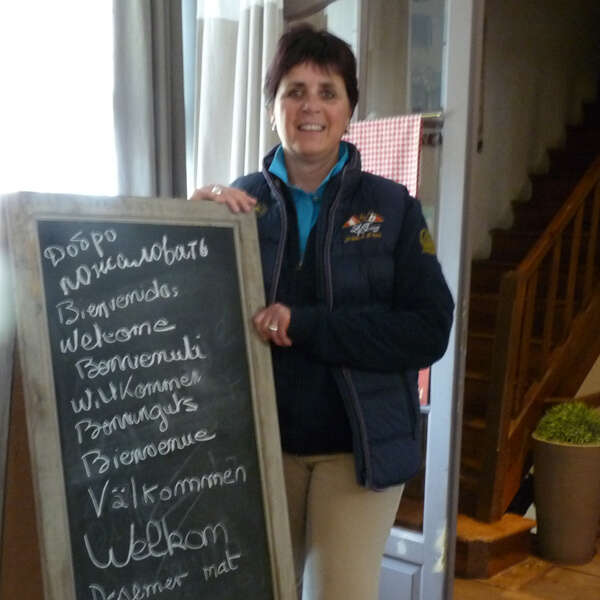 Добро
пожаловать
Bienvenidas
Welcome
Benvenuti
Willkommen
Bienvenue
Välkommen
Welkom
mat